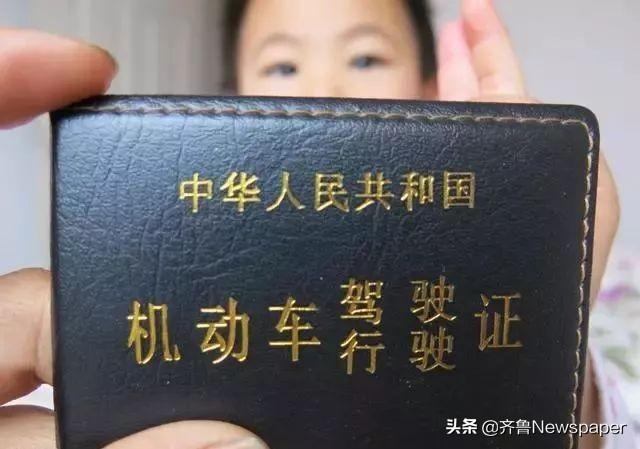 中华人民共和国
机动车驾驶证
行驶
头条 @齐鲁Newspaper